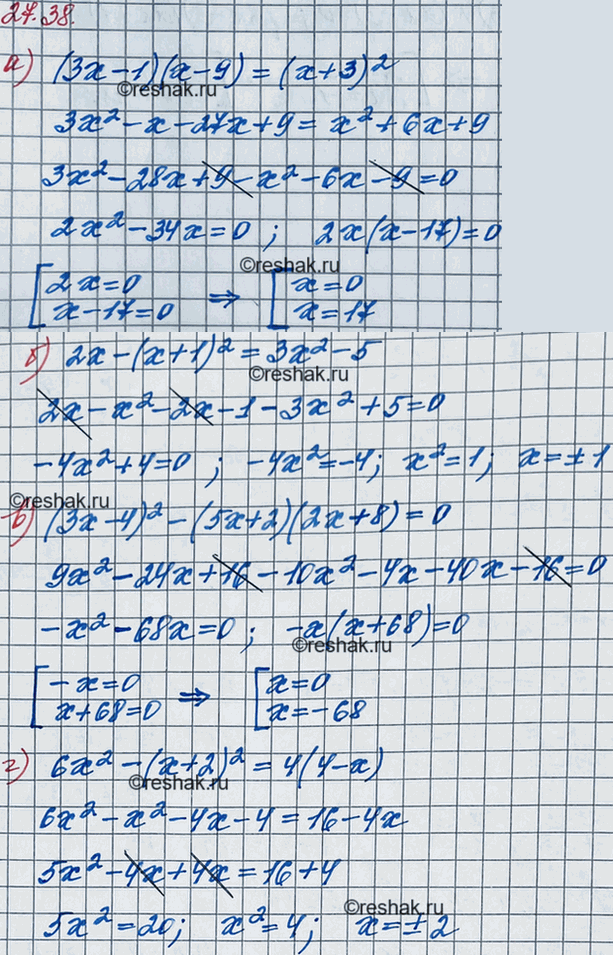 27.38.
а) (3x-1)(x-9)=(x+3)²
©reshak.ru
3x²-x-27x+9=x²+6x+9
3x²-28x+9-x²-6x-9=0
2x²-34x=0; 2x(x-17)=0
©reshak.ru
[2x=0 ⇒ [x=0
x-17=0 x=17
б) 2x-(x+1)²=3x²-5
©reshak.ru
2x-x²-2x-1-3x²+5=0
-4x²+4=0; -4x²=-4; x²=1; x=±1
©reshak.ru
в) (3x-4)²-(5x+2)(2x+8)=0
9x²-24x+16-10x²-4x-40x-16=0
-x²-68x=0; -x(x+68)=0
©reshak.ru
[-x=0 ⇒ [x=0
x+68=0 x=-68
г) 6x²-(x+2)²=4(4-x)
©reshak.ru
6x²-x²-4x-4=16-4x
5x²-4x+4x=16+4
©reshak.ru
5x²=20; x²=4; x=±2